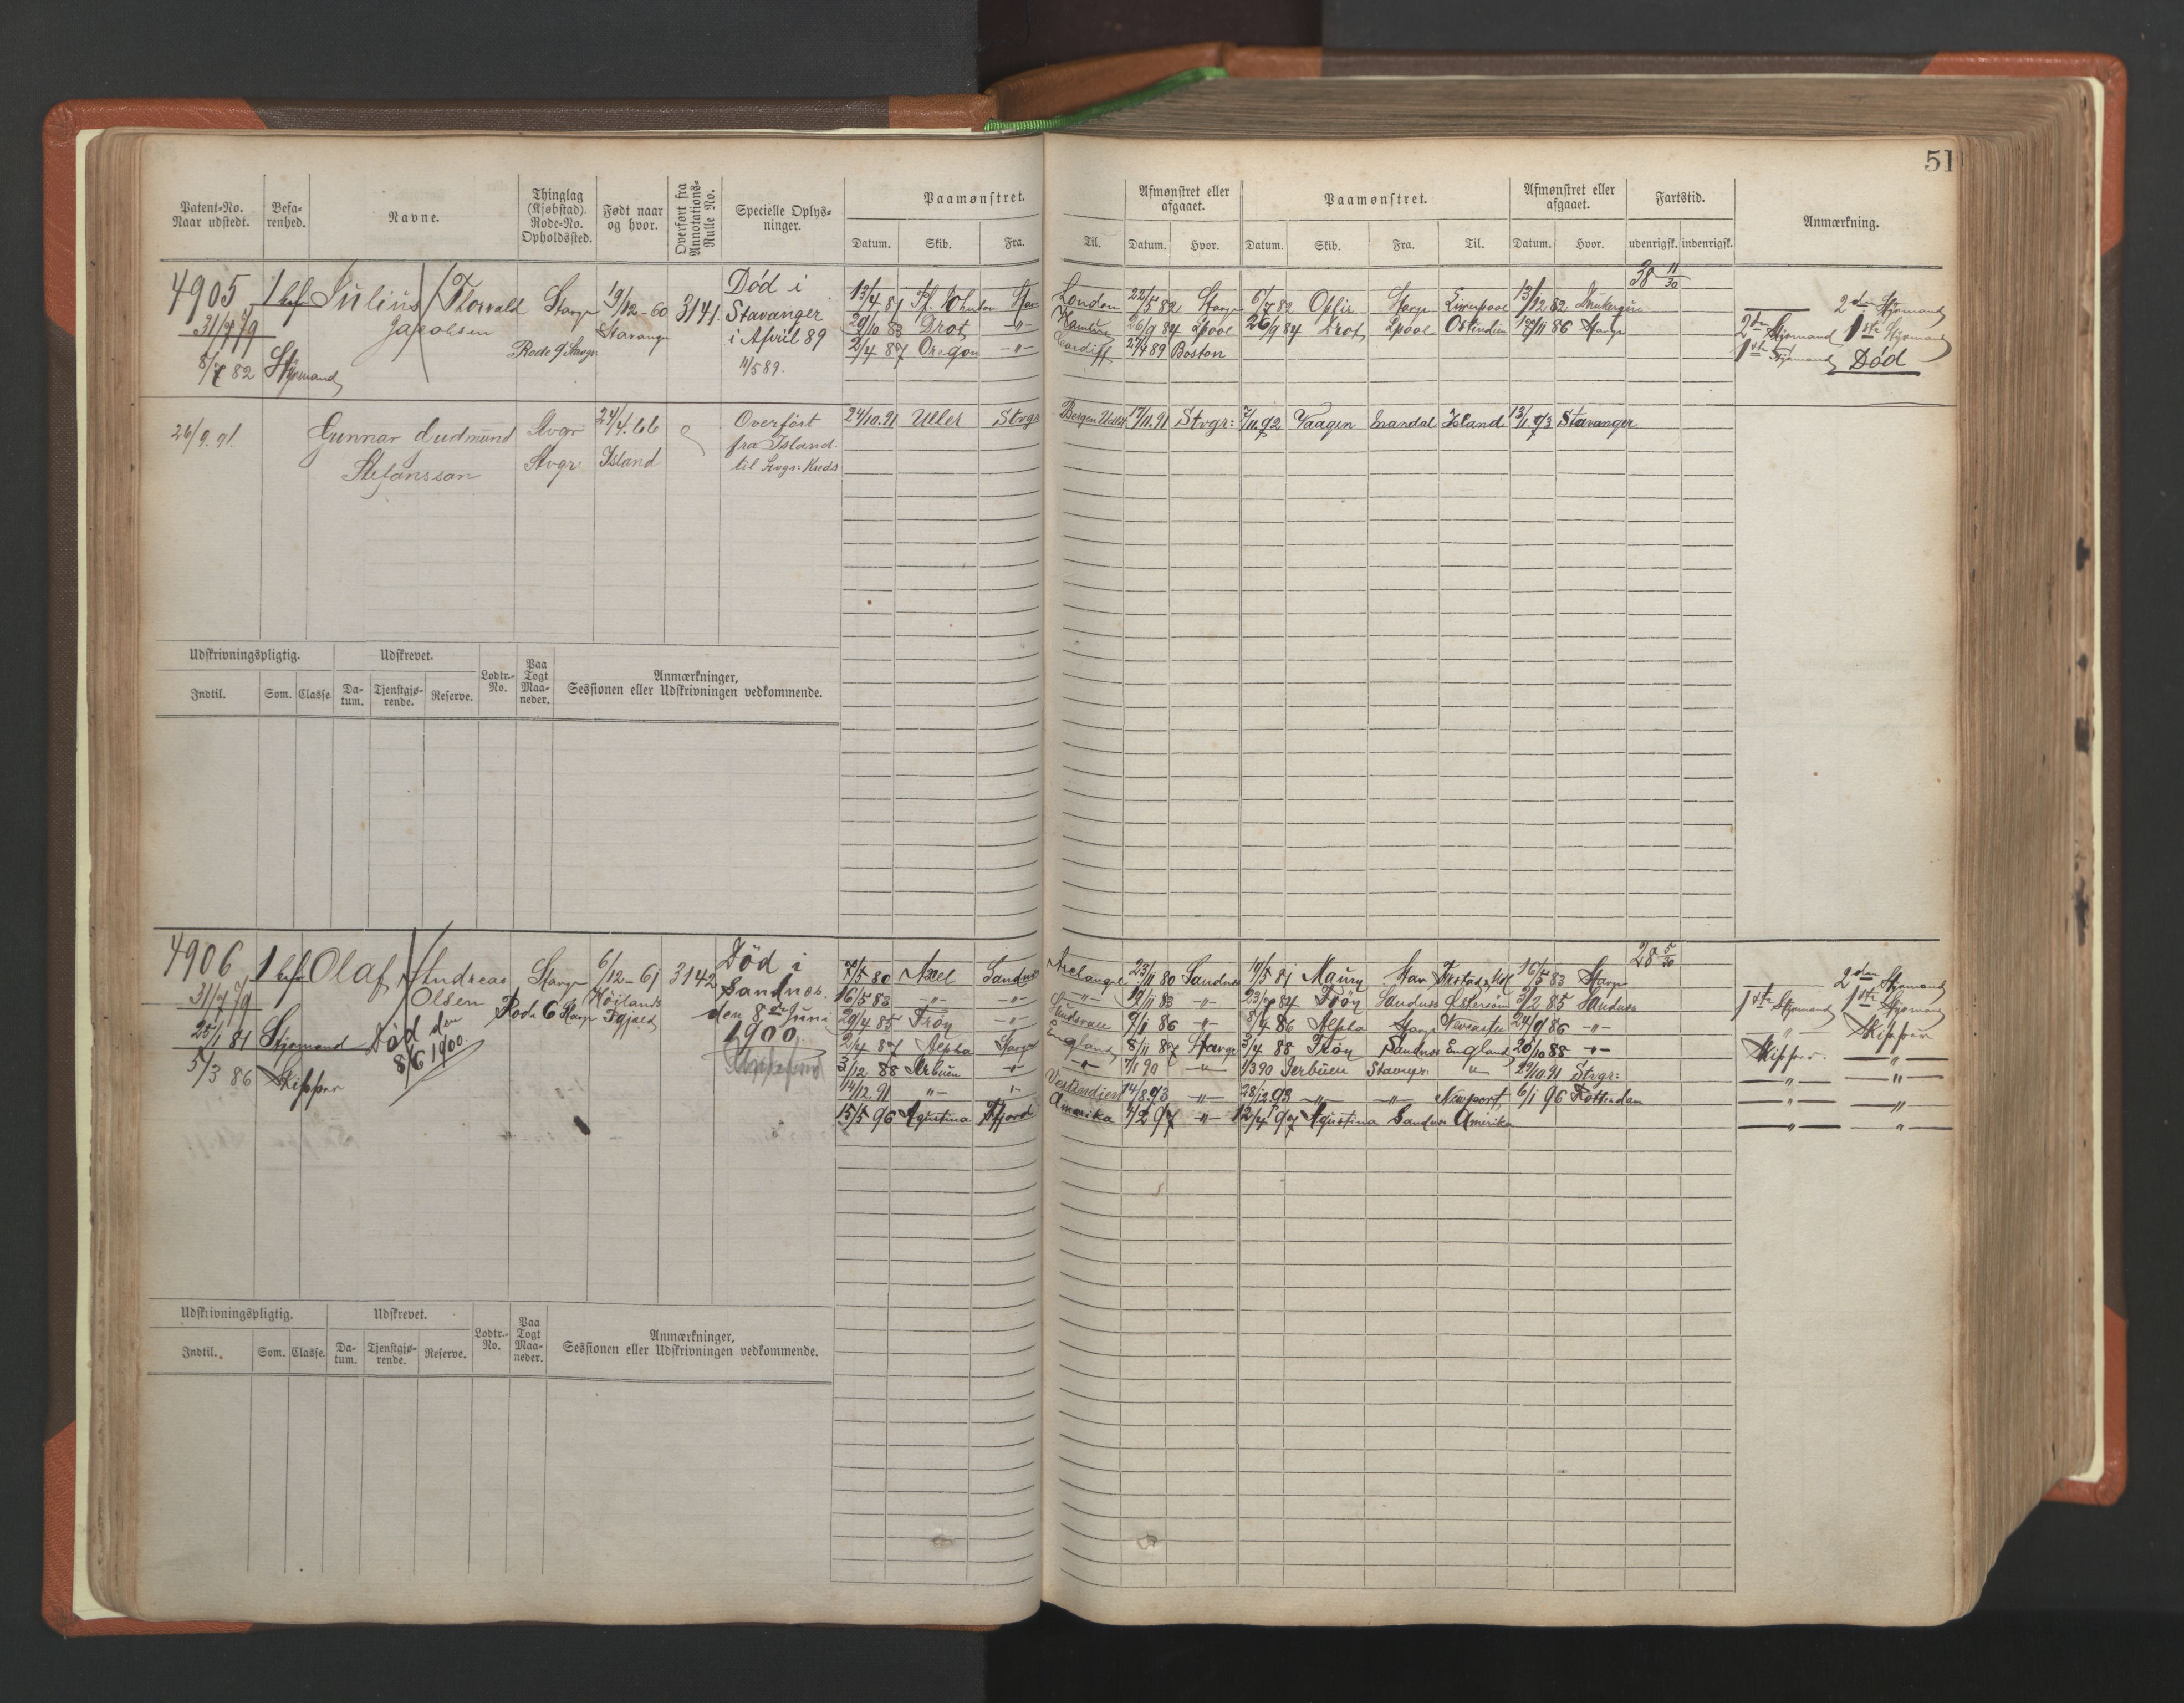 51
Patent-No. Naar udstedt.
Befa-renhed.
Navne.
Thinglag (Kjøbstad). Rode-No. Opholdssted.
Født naar og hvor.
Overført fra Annotations-Rulle No.
Specielle Oplys-ninger.
Paamønstret.
Datum. Skib. Fra. Til.
Afmønstret eller afgaaet.
Datum. Hvor.
Paamønstret.
Datum. Skib. Fra. Til.
Afmønstret eller afgaaet.
Datum. Hvor.
Fartstid.
udenrigsk. indenrigsk.
Anmærkning.
4905
31/7 79
5/7 82
1 bef
Styrmand
Julius Thorvald
Jacobsen
Stavgr
Rode 9 Stavgr
19/12-60
Stavanger
3141.
Død i
Stavanger
i April 89
11/5 89.
13/4 81 London 22/5 82 Stavgr 6/7 82 Ophir Stavgr Liverpool 13/12 82
29/10 83 Drot -"- Hamburg 26/9 84 Lpool 26/9 84 Drot Lpool Ostindien 86 Stavgr
2/4 87 Oregon -"- Cardiff 27/4 89 Boston
38 11/30
2den Styrmand
2den Styrmand 1ste Styrmand
1ste Styrmand Død
26/9. 91.
Gunnar Gudmund
Stefansson
Stvgr
Stvgr
24/4. 66
Island
Overført
fra Island
til Stvgr. Kreds
24/10. 91 Uller Stvgr Bergen 17/11. 91 Stvgr: 7/11. 92 Vaagen Mandal Island 13/1 93 Stavanger
Udskrivningspligtig.
Udskrevet.
Lodtr.-No.
Paa Togt Maa-neder.
Anmærkninger, Sessionen eller Udskrivningen vedkommende.
Indtil. Som. Classe. Da-tum. Tjenstgjø-rende. Reserve.
4906
31/7 79
25/1 81
5/3 86
1 bef
Styrmand
Skipper
Olaf Andreas
Olsen
Død den
8/6 1900.
Stavgr
Rode 6 Stavgr
6/12-61
Høilands
3142
Død i
Sandnæs.
den 8de Juni
1900
28 5/30
7/5 80 Axel Sandnæs Archangel 23/11 80 Sandnæs 19/5 81 Stav 16/5 83 Stavgr
16/5 83 -"- -"- -"- 19/11 83 -"- 84 Frøy Sandnæs 3/2 85 Sandnæs
29/4 85 Frøy -"- 9/1 86 -"- 8/4 86 Alpha Stavgr 24/9 86 -"-
2/4 87 Alpha Stavgr England 8/11 87 Stavgr 3/4 88 Frøy Sandnæs England 20/10 88 -"-
3/12 88 -"- -"- 7/1 90 -"- 1/3 90 Stavngr " 29/10 91 Stvgr:
14/12. 91 -"- "- Vestindien 14/8. 93 -"- 28/12 93 -"- -"- Newport 6/1 96 Rotterdam
15/5 96 Agustina Amerika 4/2 97 " 12/4 97 Agustina Sandnæs Amerika
2den Styrmand
1ste Styrmand 1ste Styrmand
" Skipper
Skipper. —"—
—"— —"—
—"— —"—
—"— —"—
Udskrivningspligtig.
Udskrevet.
Lodtr.-No.
Paa Togt Maa-neder.
Anmærkninger, Sessionen eller Udskrivningen vedkommende.
Indtil. Som. Classe. Da-tum. Tjenstgjø-rende. Reserve.